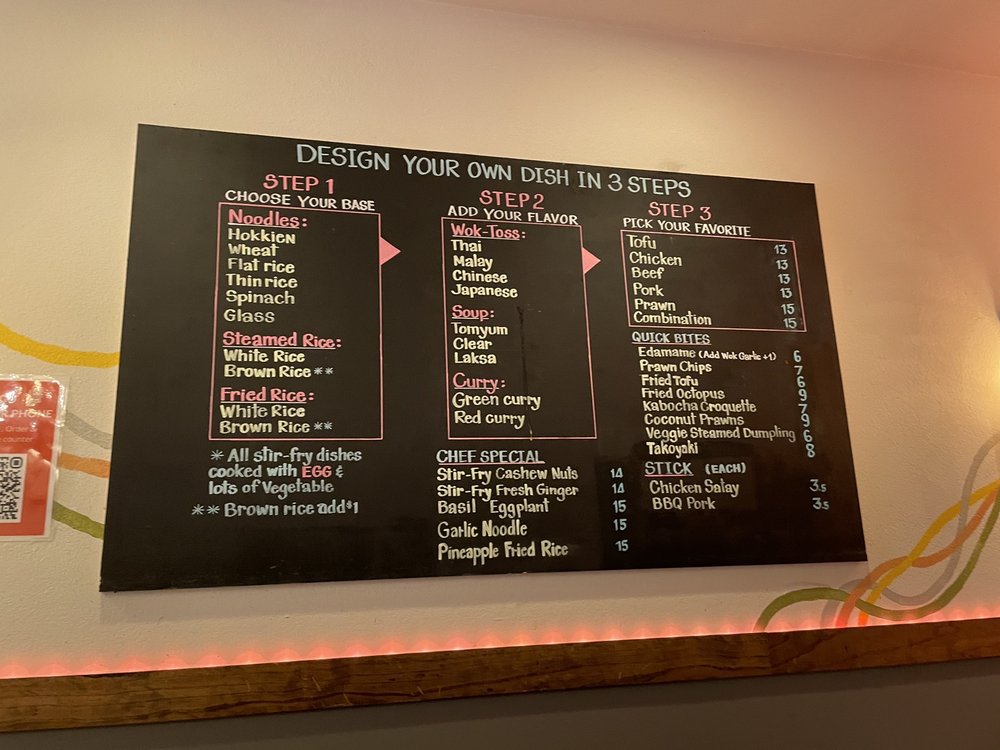 DESIGN YOUR OWN DISH IN 3 STEPS
STEP 1
CHOOSE YOUR BASE
Noodles:
Hokkien
Wheat
Flat rice
Thin rice
Spinach
Glass
Steamed Rice:
White Rice
Brown Rice **
Fried Rice:
White Rice
Brown Rice **
* All stir-fry dishes
cooked with EGG &
lots of Vegetable
** Brown rice add $1
STEP 2
ADD YOUR FLAVOR
Wok-Toss:
Thai
Malay
Chinese
Japanese
Soup:
Tomyum
Clear
Laksa
Curry:
Green curry
Red curry
CHEF SPECIAL
Stir-Fry Cashew Nuts 14
Stir-Fry Fresh Ginger 14
Basil Eggplant 15
Garlic Noodle 15
Pineapple Fried Rice 15
STEP 3
PICK YOUR FAVORITE
Tofu 13
Chicken 13
Beef 13
Pork 13
Prawn 15
Combination 15
QUICK BITES
Edamame (Add Wok Garlic +1) 6
Prawn Chips 7
Fried Tofu 6
Fried Octopus 9
Kabocha Croquette 7
Coconut Prawns 9
Veggie Steamed Dumpling 6
Takoyaki 8
STICK (EACH)
Chicken Satay 3.5
BBQ Pork 3.5
PHONE
Order
counter